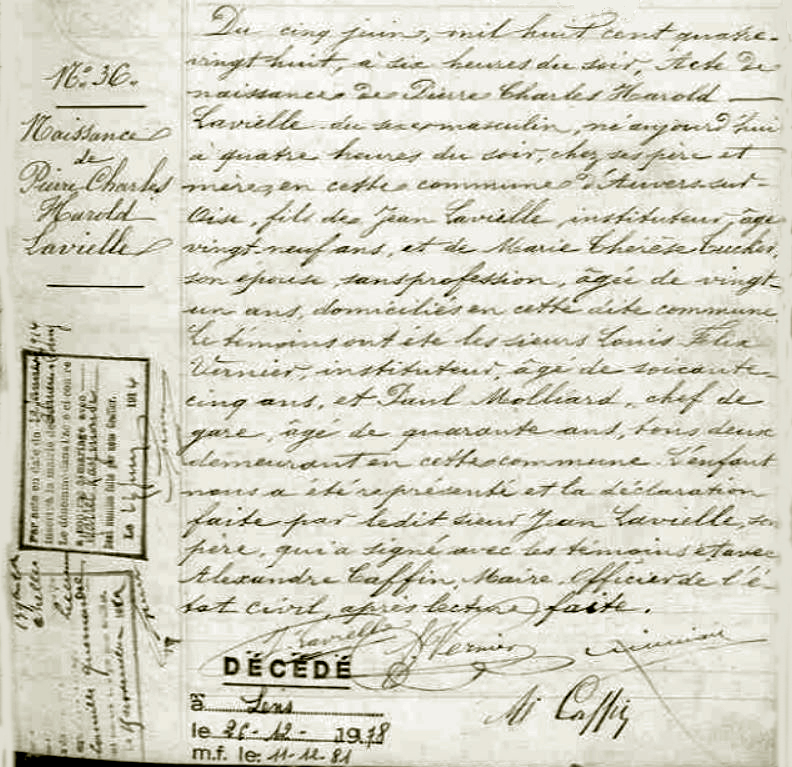 N° 36.
Naissance
de
Pierre Charles
Harold
Lavielle
Du cinq juin, mil huit cent quatre-
vingt huit, à six heures du soir, Acte de
naissance de Pierre Charles Harold
Lavielle du sexe masculin, né aujourd'hui
à quatre heures du soir, chez ses père et
mère, en cette commune d'Auvers-sur-
Oise, fils de Jean Lavielle, instituteur, âgé
vingt-neuf ans, et de Marie Therèse Tucher,
son epouse, sans profession, âgée de vingt-
un ans, domiciliés en cette dite commune
Le témoins ont été les sieurs Louis Felix
Vernier, instituteur, âgé de soixante-
cinq ans, et Paul Molliard, chef de
gare, âgé de quarante ans, tous deux
demeurant en cette commune. L'enfant
nous a été représenté et la déclaration
faite par ledit sieur Jean Lavielle, son
père, qui a signé avec les témoins et avec
Alexandre Caffin, Maire, Officier de l'é-
tat civil, après lecture faite.
Lavielle Vernier
Caffin
Par acte en date du
inscrit à la mairie de
Le 1914
DÉCÉDÉ
à Lens
le 26-12-1978
m.f. le: 11-12-81